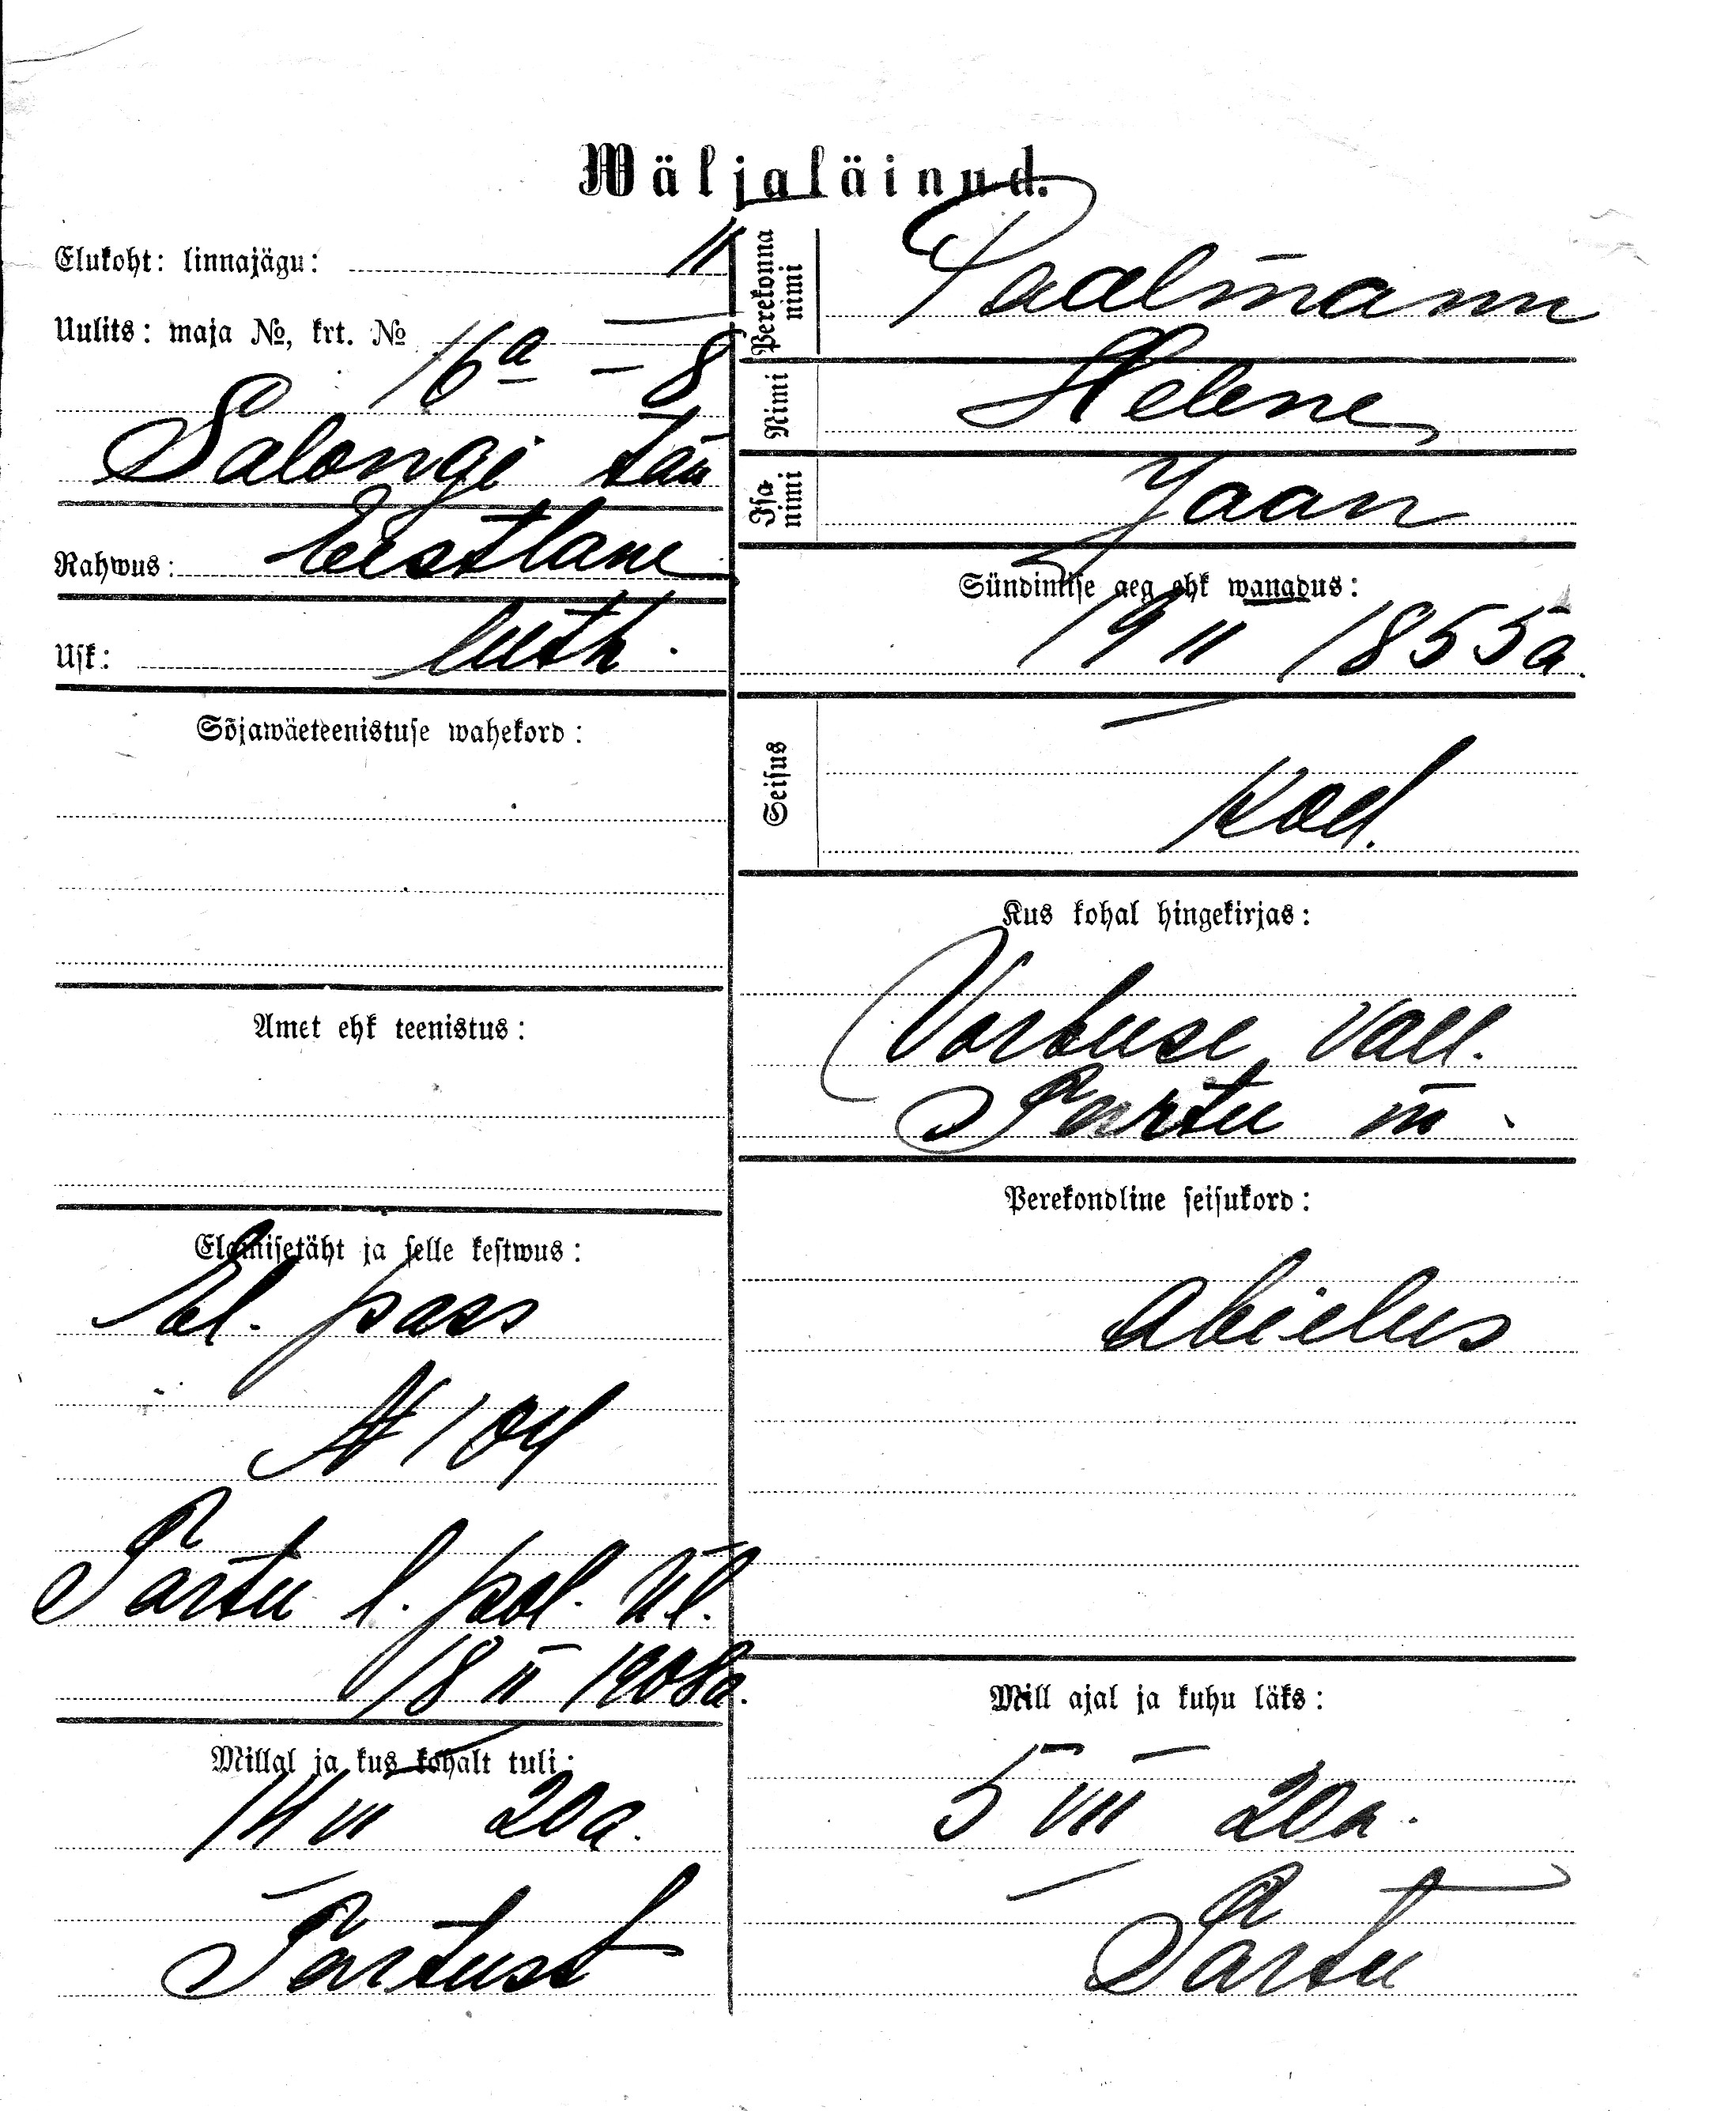 Wäljaläinud.
Elukoht: linnajägu: II
Uulits: maja №, krt. № 16a – 8
Salongi tän
Rahwus: Eestlane
Usk: luth.
Sõjawäeteenistuse wahekord:
Amet ehk teenistus:
Elamisetäht ja selle kestwus:
El. pass
№ 104
Tartu l. pol. ül.
18 II 1908a.
Millal ja kus kohalt tuli:
14 VI 20a.
Tartust
Perekonna nimi Paalmann
Nimi Helene
Isa nimi Jaan
Sündimise aeg ehk wanadus:
19 II 1855a.
Seisus
kod.
Kus kohal hingekirjas:
vall.
Tartu m.
Perekondline seisukord:
abielus
Mill ajal ja kuhu läks:
5 VII 20a.
Tartu